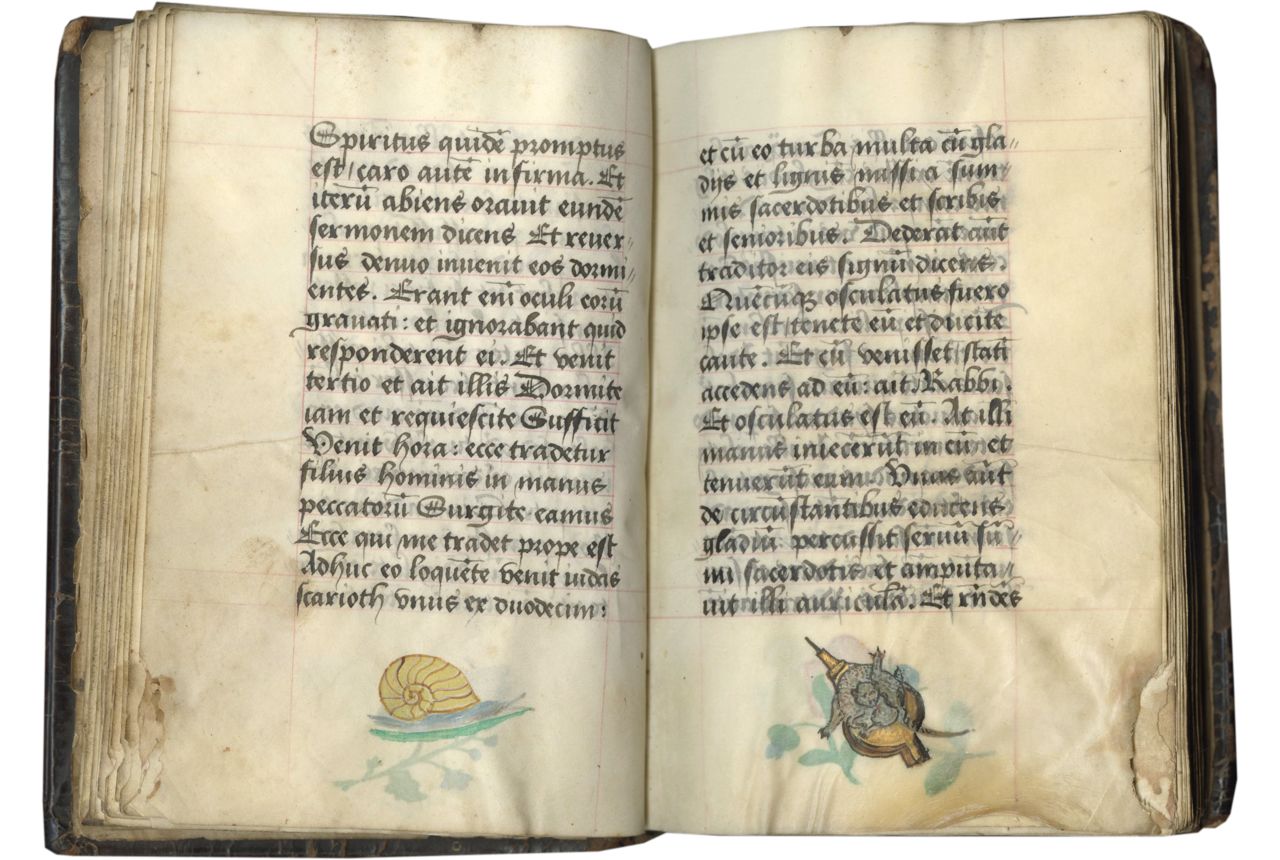 Spiritus quidē promptus
est / caro autē infirma. Et
iterū abiens orauit eundē
sermonem dicens Et reuer//
sus denuo inuenit eos dormi//
entes. Erant enī oculi eorū
grauati: et ignorabant quid
responderent ei. Et venit
tertio et ait illis Dormite
iam et requiescite Sufficit
Venit hora: ecce tradetur
filius hominis in manus
peccatorū Surgite eamus
Ecce qui me tradet prope est
Adhuc eo loquēte venit iudas
scarioth vnus ex duodecim:
et cū eo turba multa cū gla//
dijs et lignis missi a sum//
mis sacerdotibus et scribis
et senioribus. Dederat aūt
traditor eis signū dicens.
Quēcūqꝫ osculatus fuero
ipse est / tenete eū et ducite
caute. Et cū venisset / statī
accedens ad eū: ait Rabbi.
Et osculatus est eū. At illi
manus iniecerūt in eū et
tenuerūt eum. Vnus aūt
de circūstantibus educens
gladiū percussit seruū sū//
mi sacerdotis et amputa//
uit illi auriculā. Et rn̄dēs